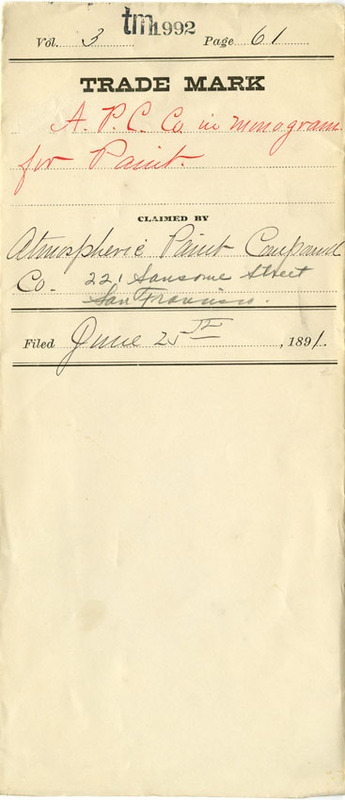 tm1992
Vol. 3 Page 61
TRADE MARK
A. P. C. Co. in monogram.
for Paint.
CLAIMED BY
Atmospheric Paint Compound
Co. 221 Sansome Street
San Francisco.
Filed June 25th, 1891.